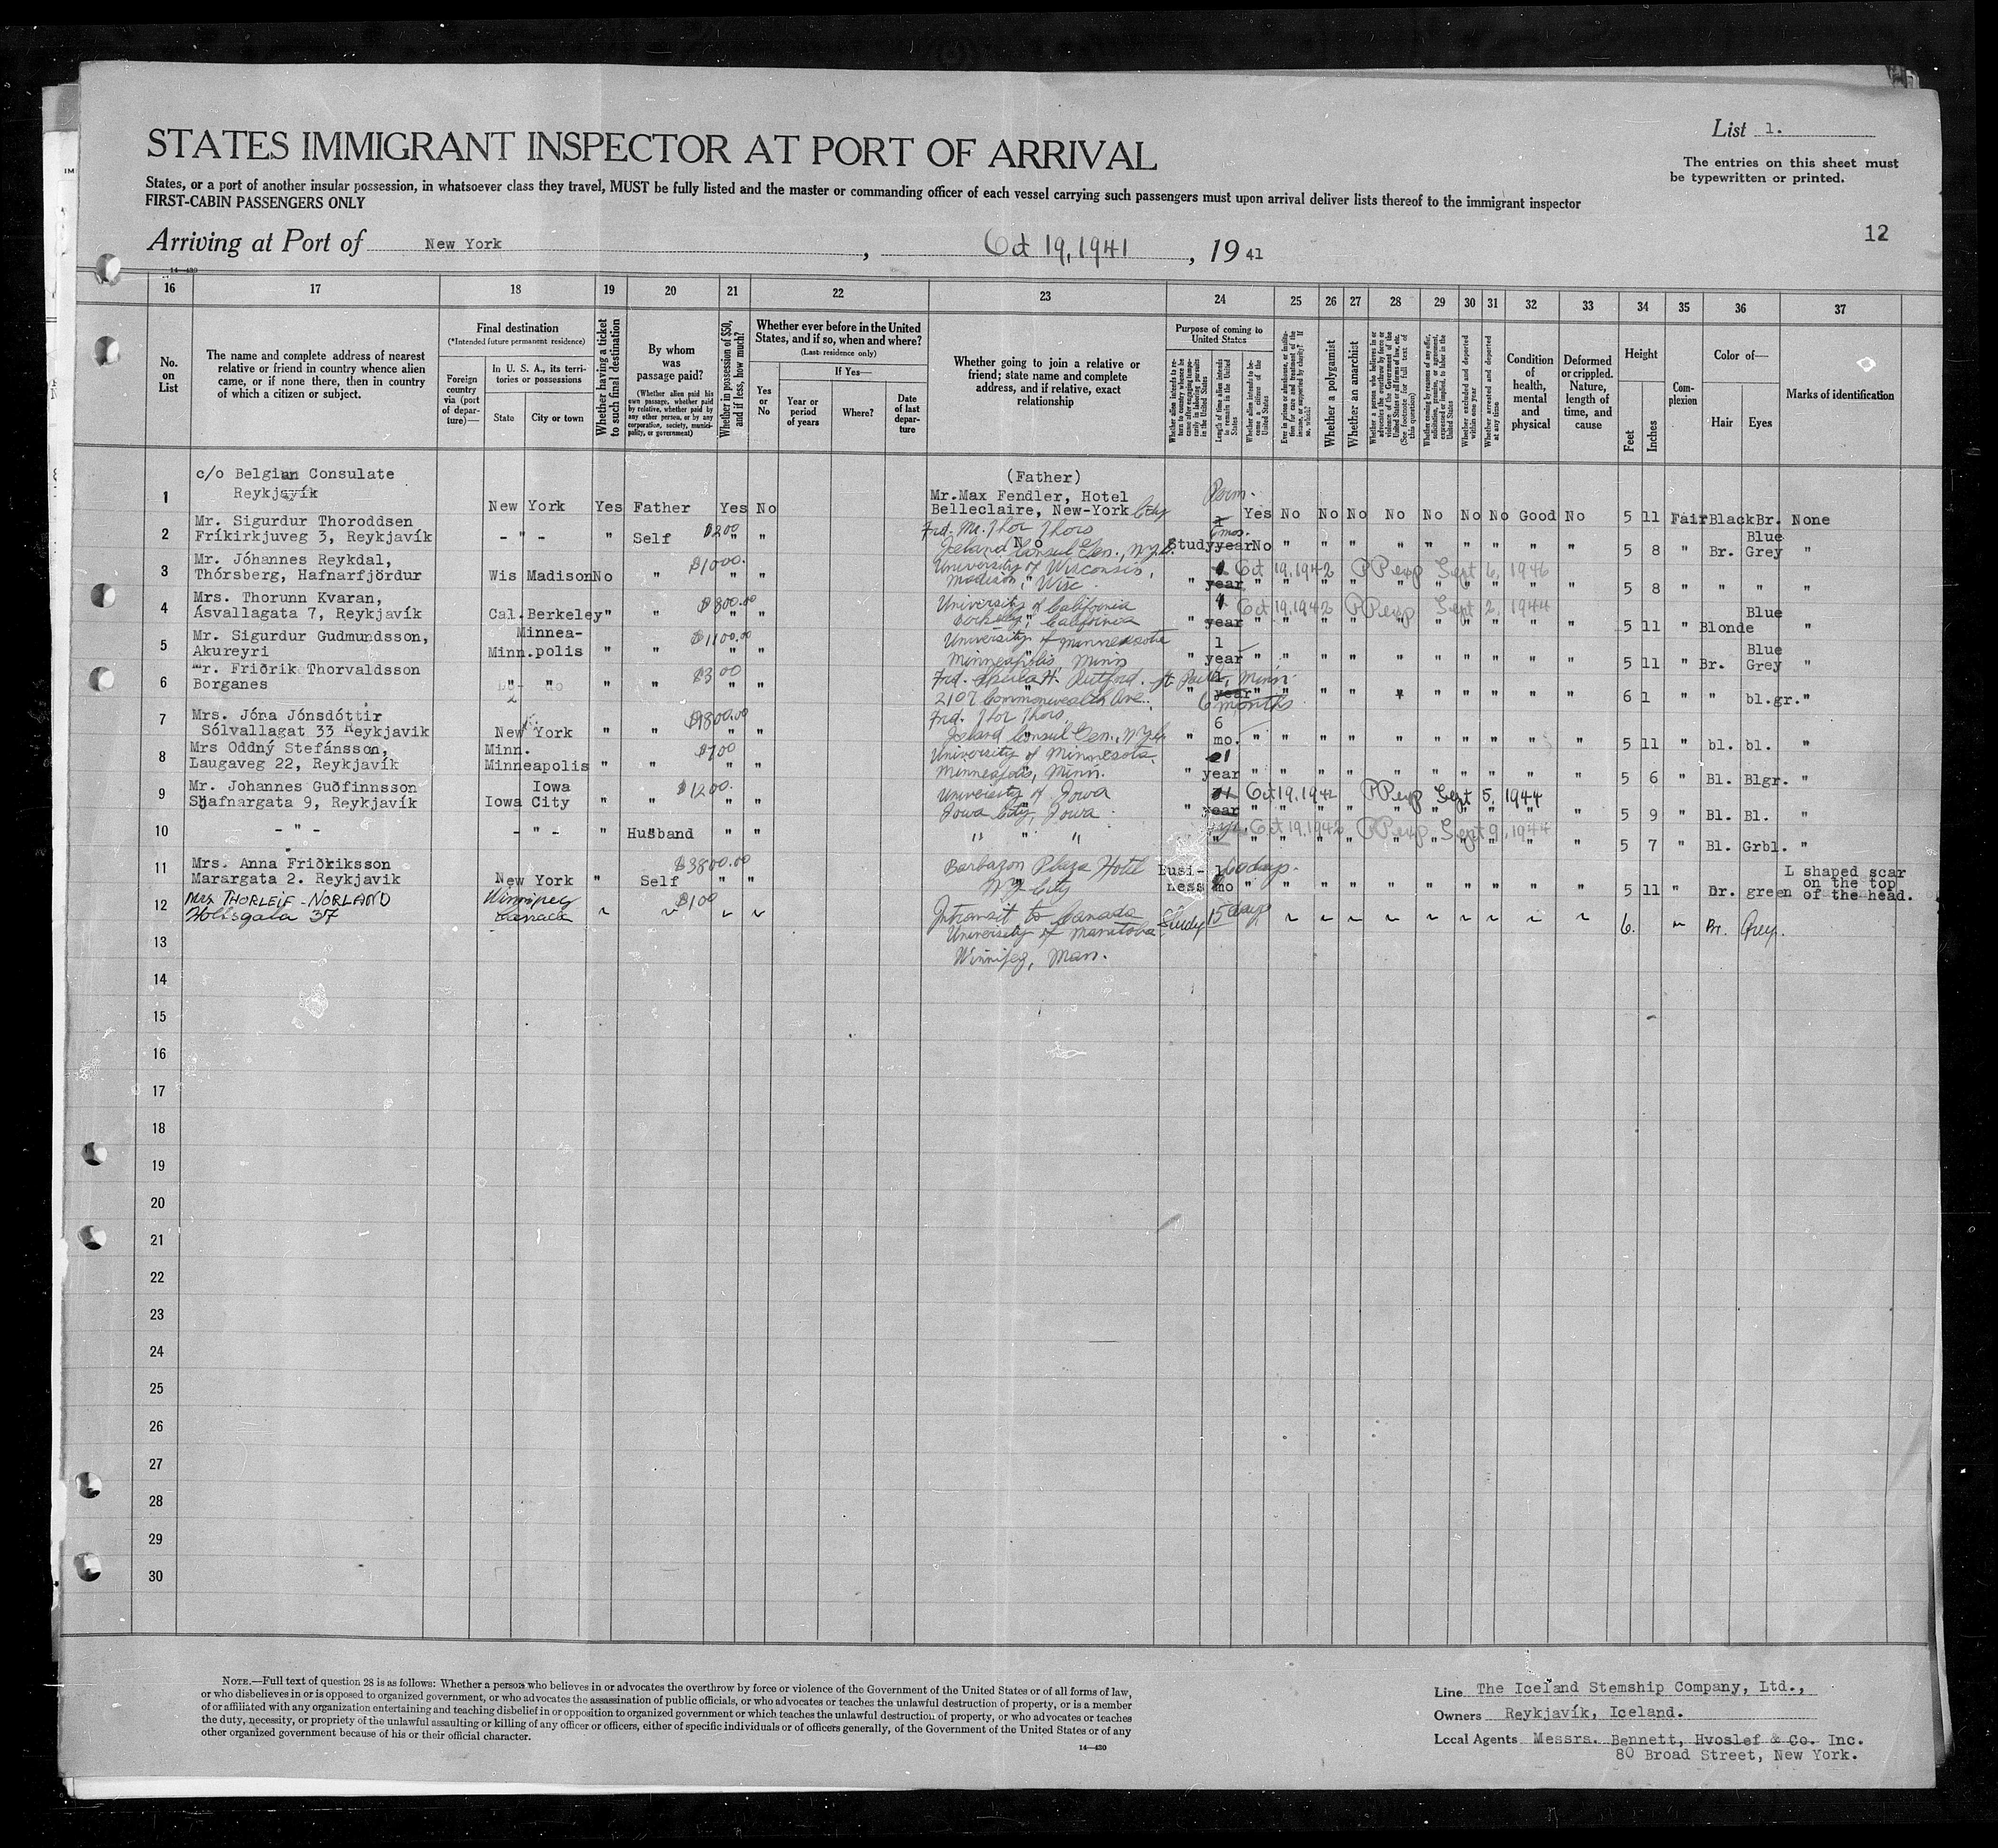 List 1.
STATES IMMIGRANT INSPECTOR AT PORT OF ARRIVAL
The entries on this sheet must
be typewritten or printed.
States, or a port of another insular possession, in whatsoever class they travel, MUST be fully listed and the master or commanding officer of each vessel carrying such passengers must upon arrival deliver lists thereof to the immigrant inspector
FIRST-CABIN PASSENGERS ONLY
12
Arriving at Port of New York, Oct 19, 1941, 1941
14—430
16 17 18 19 20 21 22 23 24 25 26 27 28 29 30 31 32 33 34 35 36 37
No. on List
The name and complete address of nearest
relative or friend in country whence alien
came, or if none there, then in country
of which a citizen or subject.
Final destination
(*Intended future permanent residence)
Foreign country via (port of departure)—
In U. S. A., its territories or possessions
State
City or town
Whether having a ticket to such final destination
By whom was passage paid?
(Whether alien paid his own passage, whether paid by relative, whether paid by any other person, or by any corporation, society, municipality, or government)
Whether in possession of $50, and if less, how much?
Whether ever before in the United States, and if so, when and where?
(Last residence only)
Yes or No
If Yes—
Year or period of years
Where?
Date of last departure
Whether going to join a relative or
friend; state name and complete
address, and if relative, exact
relationship
Purpose of coming to United States
Length of time alien intends to remain in the United States
Whether alien intends to become a citizen of the United States
Whether a polygamist
Whether an anarchist
Whether excluded and deported within one year
Whether arrested and deported at any time
Condition of health, mental and physical
Deformed or crippled. Nature, length of time, and cause
Height
Feet
Inches
Complexion
Color of—
Hair
Eyes
Marks of identification
1 c/o Belgian Consulate
Reykjavík New York Yes Father Yes No (Father)
Mr.Max Fendler, Hotel
Belleclaire, New-York City Perm. Yes No No No No No No No Good No 5 11 Fair Black Br. None
2 Mr. Sigurdur Thoroddsen
Fríkirkjuveg 3, Reykjavík - " - " Self $200 " " Frd. Mr. Thor Thors
No
Iceland Consul Gen., N.Y.C. Study 6 mos. year No " " " " " " " " " 5 8 " Br. Blue Grey "
3 Mr. Jóhannes Reykdal,
Thórsberg, Hafnarfjördur Wis Madison No " $1000. " " University of Wisconsin,
Madison, Wisc. " 1 year Oct 19, 1942 PP exp Sept 6, 1946 5 8 " " " "
4 Mrs. Thorunn Kvaran,
Ásvallagata 7, Reykjavík Cal. Berkeley " " $800.00 " " University of California
Berkeley, California " 1 year Oct 19, 1942 PP exp Sept 2, 1944 5 11 " Blonde Blue "
5 Mr. Sigurdur Gudmundsson,
Akureyri Minn. Minnea-
polis " " $1100.00 " " University of Minnesota
Minneapolis, Minn " 1 year " " " " " " " " " " 5 11 " Br. Blue Grey "
6 Mr. Friðrik Thorvaldsson
Borganes " " " " $300 " " Frd. St. Paul, Minn.
2107 Commonwealth Ave., " 1 year 6 months " " " " " " " " " 6 1 " " bl.gr. "
7 Mrs. Jóna Jónsdóttir
Sólvallagat 33 Reykjavik New York " " $1800.00 " " Frd. Thor Thors
Iceland Consul Gen., N.Y.C. " 6 mo. " " " " " " " " " " 5 11 " bl. bl. "
8 Mrs Oddný Stefánsson,
Laugaveg 22, Reykjavík Minn.
Minneapolis " " $700 " " University of Minnesota
Minneapolis, Minn. " 1 year " " " " " " " " " " 5 6 " Bl. Blgr. "
9 Mr. Johannes Guðfinnsson
Sjafnargata 9, Reykjavík Iowa Iowa City " " $1200. " " University of Iowa
Iowa City, Iowa " 1 year Oct 19, 1942 PP exp Sept 5, 1944 5 9 " Bl. Bl. "
10 - " - - " - " Husband " " " " " 1 yr. Oct 19, 1942 PP exp Sept 9, 1944 5 7 " Bl. Grbl. "
11 Mrs. Anna Friðriksson
Marargata 2. Reykjavik New York " Self $3800.00 " " Barbazon Plaza Hotel
N.Y. City Busi-
ness mo 60 days. " " " " " " " " " " 5 11 " Br. green L shaped scar
on the top
of the head.
12 Mrs THORLEIF-NORLAND
Holtsgata 37 Winnipeg
Canada $100 Intransit to Canada
University of Manitoba
Winnipeg, Man. Study 15 days 6. Br. Grey.
13
14
15
16
17
18
19
20
21
22
23
24
25
26
27
28
29
30
NOTE.—Full text of question 28 is as follows: Whether a person who believes in or advocates the overthrow by force or violence of the Government of the United States or of all forms of law,
or who disbelieves in or is opposed to organized government, or who advocates the assassination of public officials, or who advocates or teaches the unlawful destruction of property, or is a member
of or affiliated with any organization entertaining and teaching disbelief in or opposition to organized government or which teaches the unlawful destruction of property, or who advocates or teaches
the duty, necessity, or propriety of the unlawful assaulting or killing of any officer or officers, either of specific individuals or of officers generally, of the Government of the United States or of any
other organized government because of his or their official character.
14—430
Line The Iceland Stemship Company, Ltd.,
Owners Reykjavík, Iceland.
Local Agents Messrs. Bennett, Hvoslef & Co. Inc.
80 Broad Street, New York.